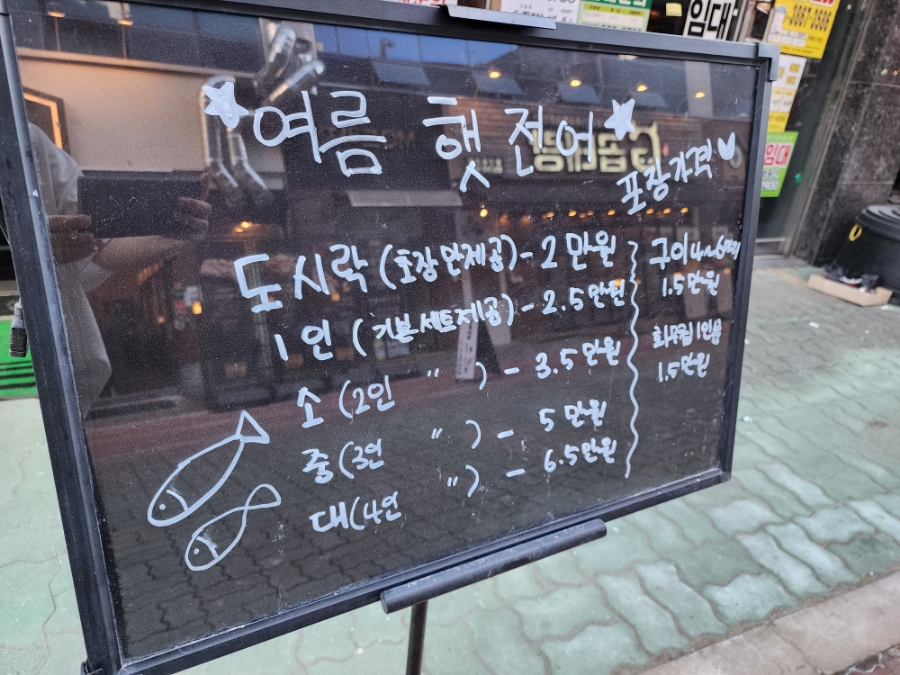 임대
여름 햇 전어
포장가격
도시락 (포장만제공) - 2만원
1인 (기본세트제공) - 2.5만원
소 (2인 〃 ) - 3.5만원
중 (3인 〃 ) - 5만원
대 (4인 〃 ) - 6.5만원
구이
1.5만원
1인분
1.5만원
임대